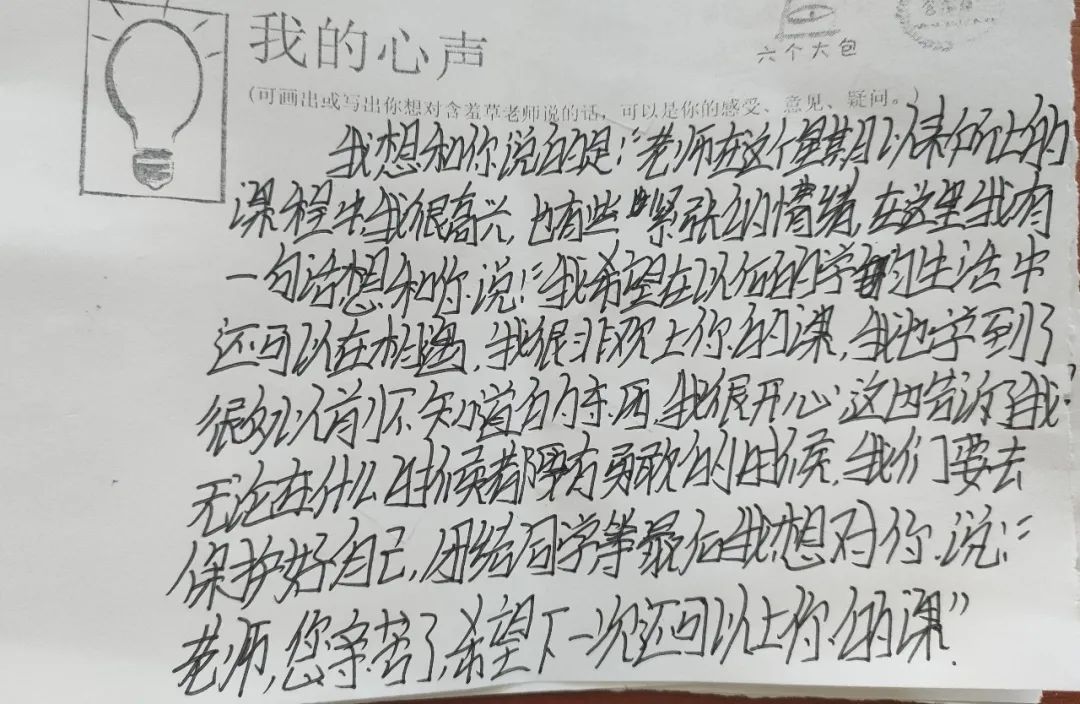 六个大包
我的心声
(可画出或写出你想对含羞草老师说的话，可以是你的感受、意见、疑问。)
我想和你说的是：“老师在这个星期以来所上的
课程中我很高兴，也有些紧张的情绪，在这里我有
一句话想和你说：“我希望在以后的学习的生活中
还可以在相遇，我很喜欢上你的课，我也学到了
很多以前不知道的东西，我很开心这也告诉了我，
无论在什么时候都要有勇敢的时候，我们要去
保护好自己，团结同学等最后我想对你说：“
老师，您辛苦了，希望下一次还可以上你的课”